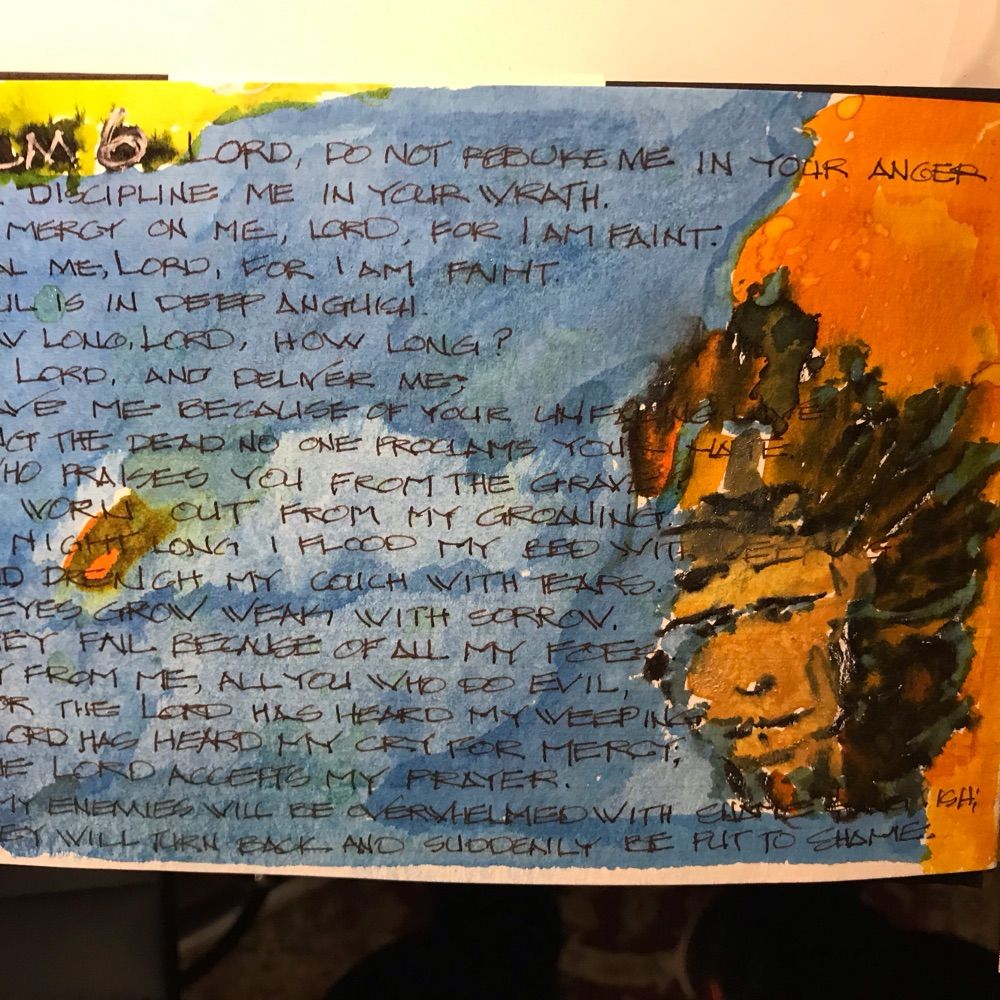 LM 6 LORD, DO NOT REBUKE ME IN YOUR ANGER
DISCIPLINE ME IN YOUR WRATH.
MERCY ON ME, LORD, FOR I AM FAINT:
AL ME, LORD, FOR I AM FAINT.
UL IS IN DEEP ANGUISH.
W LONG, LORD, HOW LONG?
LORD, AND DELIVER ME;
AVE ME BECAUSE OF YOUR UNFAILING LOVE
THE DEAD NO ONE PROCLAIMS YOUR NAME.
HO PRAISES YOU FROM THE GRAVE
WORN OUT FROM MY GROANING.
NIGHT LONG I FLOOD MY BED WITH WEEPING
D DRENCH MY COUCH WITH TEARS.
EYES GROW WEAK WITH SORROW.
EY FAIL BECAUSE OF ALL MY FOES
Y FROM ME, ALL YOU WHO DO EVIL,
OR THE LORD HAS HEARD MY WEEPING
LORD HAS HEARD MY CRY FOR MERCY;
HE LORD ACCEPTS MY PRAYER.
MY ENEMIES WILL BE OVERWHELMED WITH SHAME ISH;
EY WILL TURN BACK AND SUDDENLY BE PUT TO SHAME